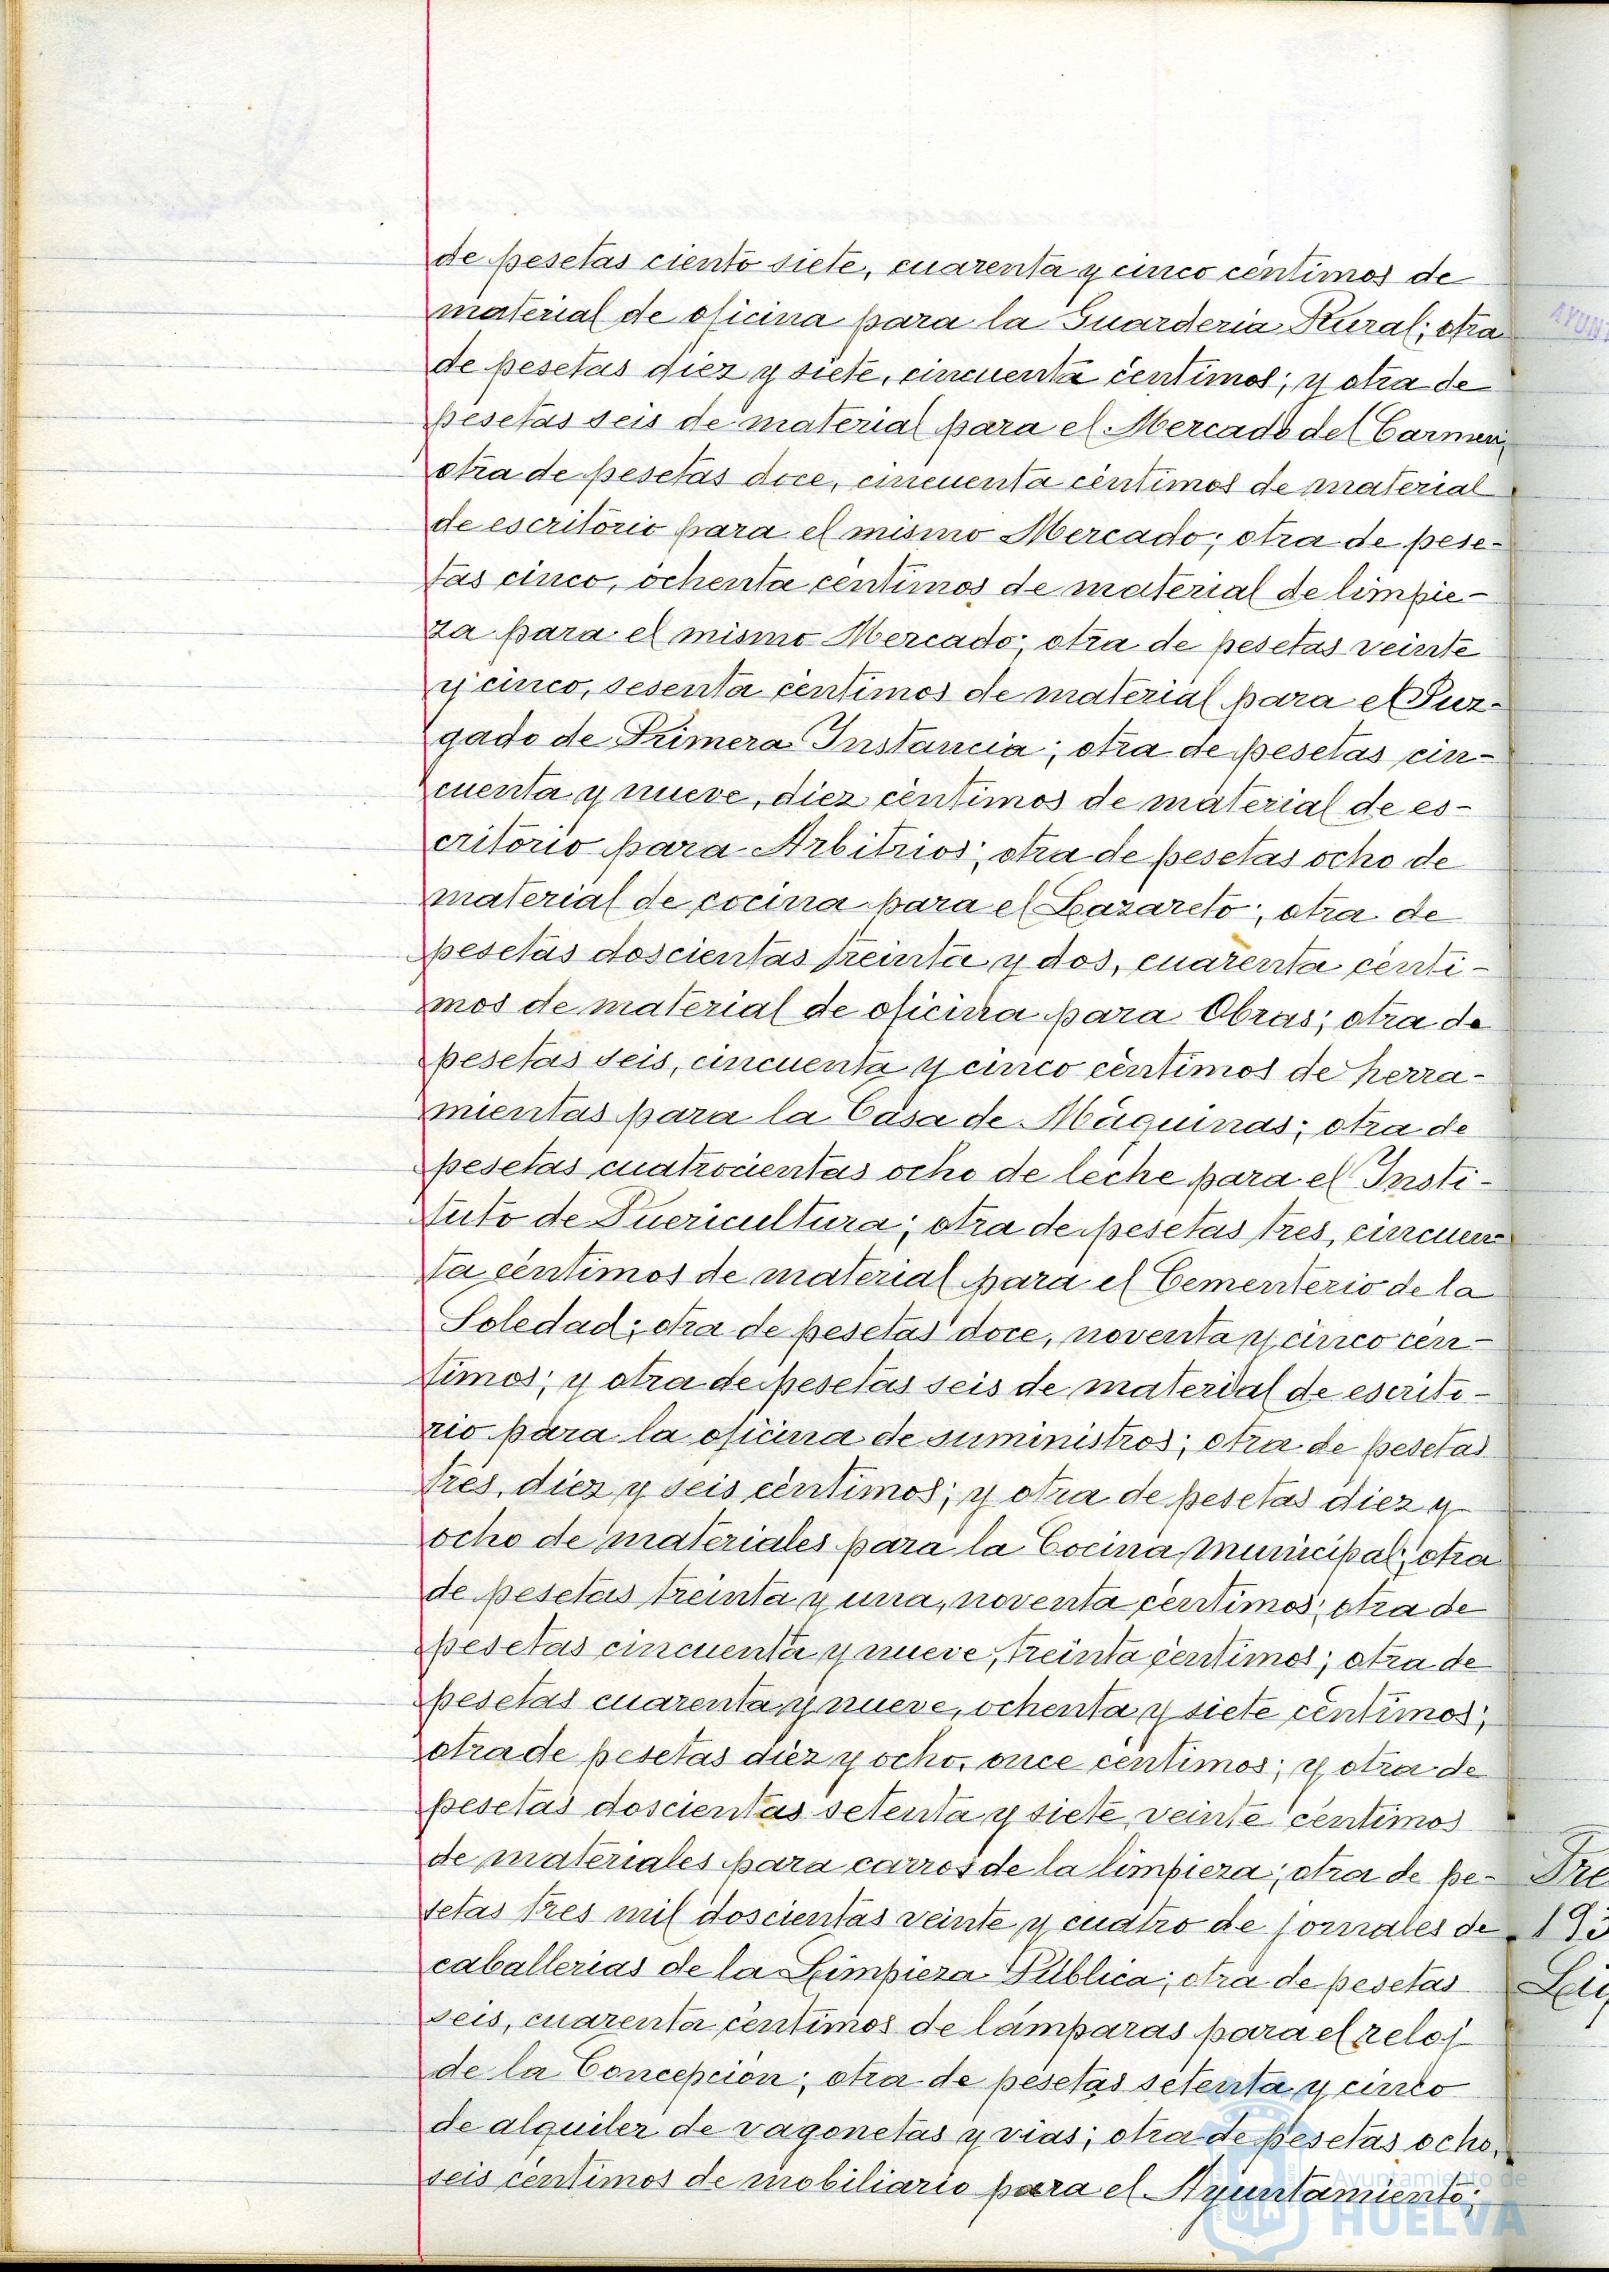 de pesetas ciento siete, cuarenta y cinco céntimos de
material de oficina para la Guarderia Rural; otra
de pesetas diez y siete, cincuenta centimos; y otra de
pesetas seis de material para el Mercado del Carmen,
otra de pesetas doce, cincuenta céntimos de material
de escritorio para el mismo Mercado; otra de pese-
tas cinco, ochenta céntimos de material de limpie-
za para el mismo Mercado; otra de pesetas veinte
y cinco, sesenta céntimos de material para el Juz-
gado de Primera Instancia; otra de pesetas cin-
cuenta y nueve, diez céntimos de material de es-
critorio para Arbitrios; otra de pesetas ocho de
material de cocina para el Lazareto; otra de
pesetas doscientas treinta y dos, cuarenta cénti-
mos de material de oficina para Obras; otra de
pesetas seis, cincuenta y cinco céntimos de herra-
mientas para la Casa de Máquinas; otra de
pesetas cuatrocientas ocho de leche para el Insti-
tuto de Puericultura; otra de pesetas tres, cincuen
ta céntimos de material para el Cementerio de la
Soledad; otra de pesetas doce, noventa y cinco cén-
timos; y otra de pesetas seis de material de escrito-
rio para la oficina de suministros; otra de pesetas
tres, diez y seis céntimos; y otra de pesetas diez y
ocho de materiales para la Cocina Municipal; otra
de pesetas treinta y una, noventa céntimos; otra de
pesetas cincuenta y nueve, treinta céntimos; otra de
pesetas cuarenta y nueve, ochenta y siete céntimos;
otra de pesetas diez y ocho, once centimos; y otra de
pesetas doscientas setenta y siete, veinte centimos
de materiales para carros de la limpieza; otra de pe-
setas tres mil doscientas veinte y cuatro de jornales de
caballerias de la Limpieza Pública; otra de pesetas
seis, cuarenta céntimos de lámparas para el reloj
de la Concepción; otra de pesetas setenta y cinco
de alquiler de vagonetas y vias; otra de pesetas ocho,
seis centimos de mobiliario para el Ayuntamiento;
Ayuntamiento de
HUELVA